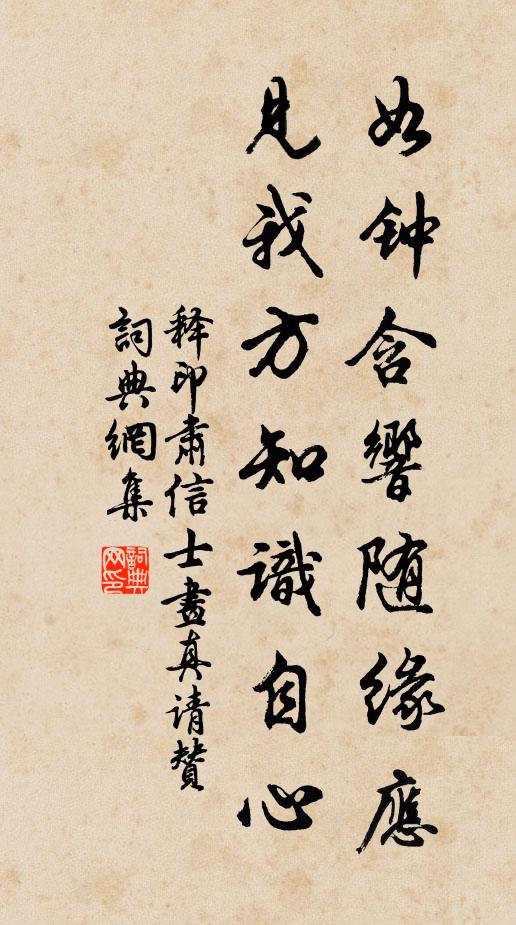 如钟含響随缘應
見我方知識自心
释印肃信士畫真请赞
詞典網集
詞典网印